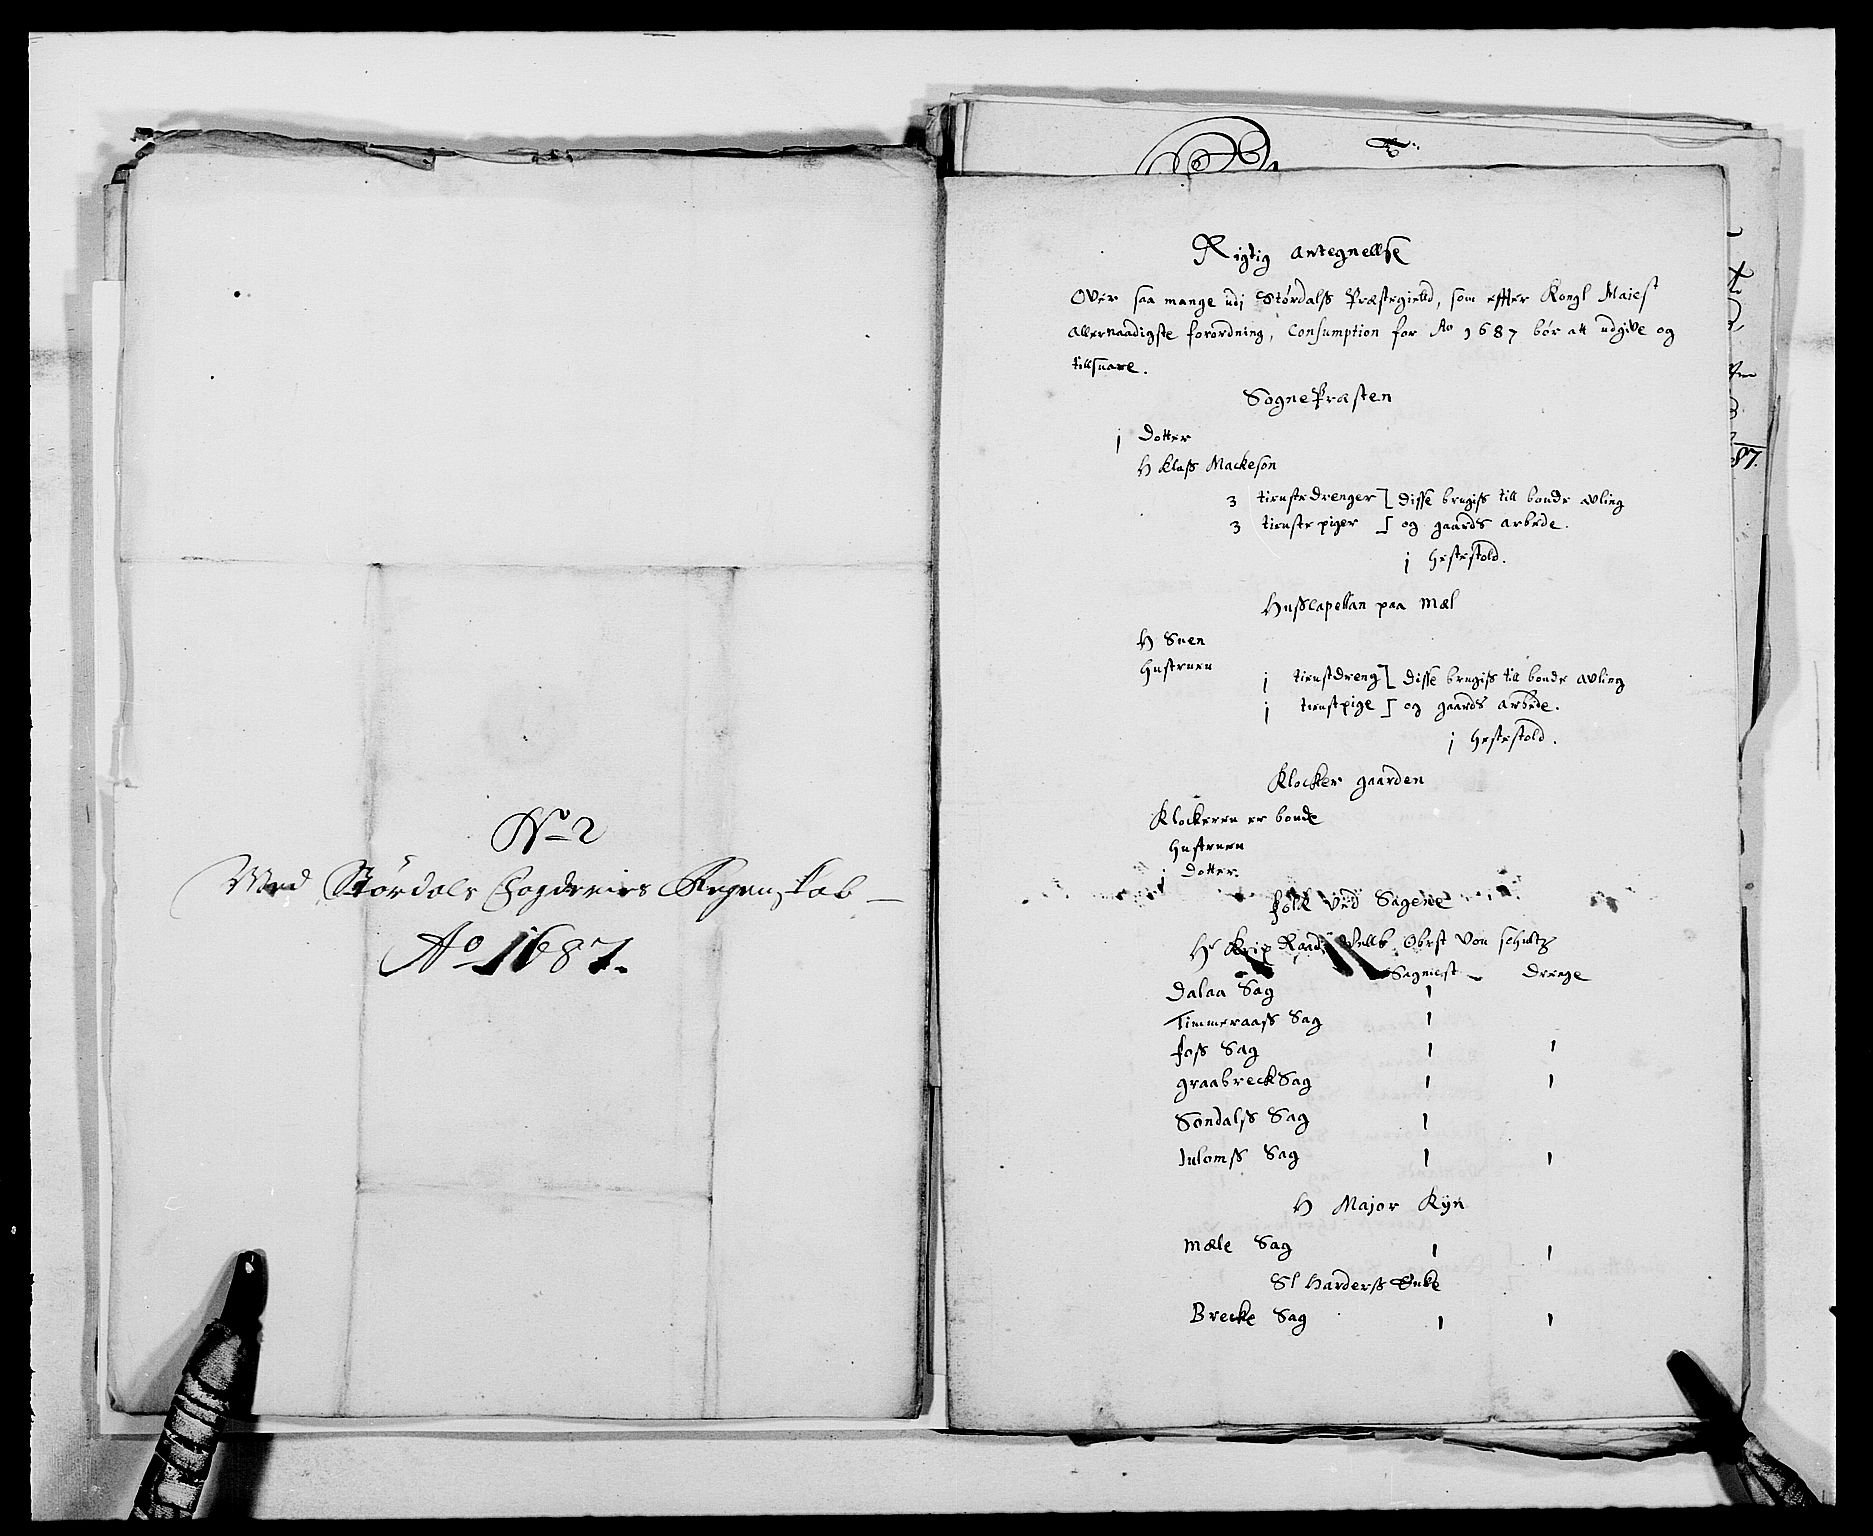 No 2
Med Størdals Fogderies Regenskab
Ao 1687.
Rigtig Antegnellse
Over saa mange udj Størdalss Præstegielld, som effter Kongl Majest
allernaadigste forordning, Consumption for Ao 1687 bør att udgive og
tillsuare.
SognePræsten
j Dotter
H Klass Mackeson
3 tienstedrenger disse brugiss till bonde avling
3 tienstepiger og gaards arbede.
j hestestold.
Husscapellan paa Mæl
H Suen
Hustruen
j tienstdreng disse brugiss till bonde avling
j tienstpige og gaards arbede.
j hestestold.
Klocker gaarden
Klockeren er bonde
hustruen
j dotter.
folk ved Sagene
Hr Krigs Raad Vellb Obrst Von schultz
Sagmest Drenge
Dalaa Sag 1
Timmeraass Sag 1
foss Sag 1 1
graabreck Sag 1 1
Sondalss Sag 1
Julomss Sag 1 1
H Major Kyn
Mæle Sag 1 1
Sl Harderss Enke
Brecke Sag 1 1
87.